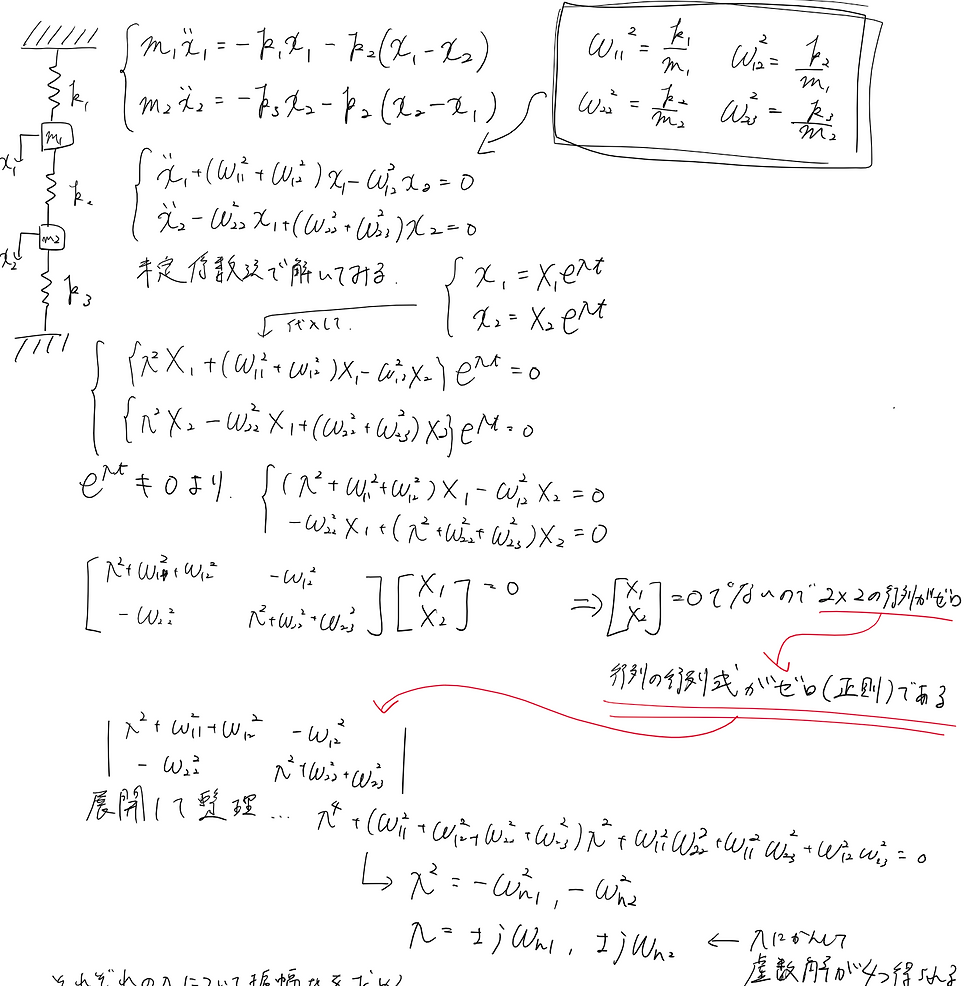 m₁ẍ₁ = -k₁x₁ - k₂(x₁ - x₂)
m₂ẍ₂ = -k₃x₂ - k₂(x₂ - x₁)
ω₁₁² = k₁/m₁ ω₁₂² = k₂/m₁
ω₂₂² = k₂/m₂ ω₂₃² = k₃/m₂
k₁
m₁
x₁
k₂
m₂
x₂
k₃
ẍ₁ + (ω₁₁² + ω₁₂²)x₁ - ω₁₂²x₂ = 0
ẍ₂ - ω₂₂²x₁ + (ω₂₂² + ω₂₃²)x₂ = 0
未定係数法で解いてみる.
x₁ = X₁e^λt
x₂ = X₂e^λt
代入して.
{λ²X₁ + (ω₁₁² + ω₁₂²)X₁ - ω₁₂²X₂}e^λt = 0
{λ²X₂ - ω₂₂²X₁ + (ω₂₂² + ω₂₃²)X₂}e^λt = 0
e^λt ≠ 0より.
(λ² + ω₁₁² + ω₁₂²)X₁ - ω₁₂²X₂ = 0
-ω₂₂²X₁ + (λ² + ω₂₂² + ω₂₃²)X₂ = 0
[λ² + ω₁₁² + ω₁₂² -ω₁₂²] [X₁] = 0
[-ω₂₂² λ² + ω₂₂² + ω₂₃²] [X₂]
⇒ [X₁ X₂] = 0でないので 2×2の行列がゼロ
行列の行列式がゼロ(正則)である
|λ² + ω₁₁² + ω₁₂² -ω₁₂²|
|-ω₂₂² λ² + ω₂₂² + ω₂₃²|
展開して整理...
λ⁴ + (ω₁₁² + ω₁₂² + ω₂₂² + ω₂₃²)λ² + ω₁₁²ω₂₂² + ω₁₁²ω₂₃² + ω₁₂²ω₂₃² = 0
λ² = -ωn₁², -ωn₂²
λ = ±jωn₁, ±jωn₂
← λにかんして
虚数解が4つ得られる
それぞれのλについて振幅比